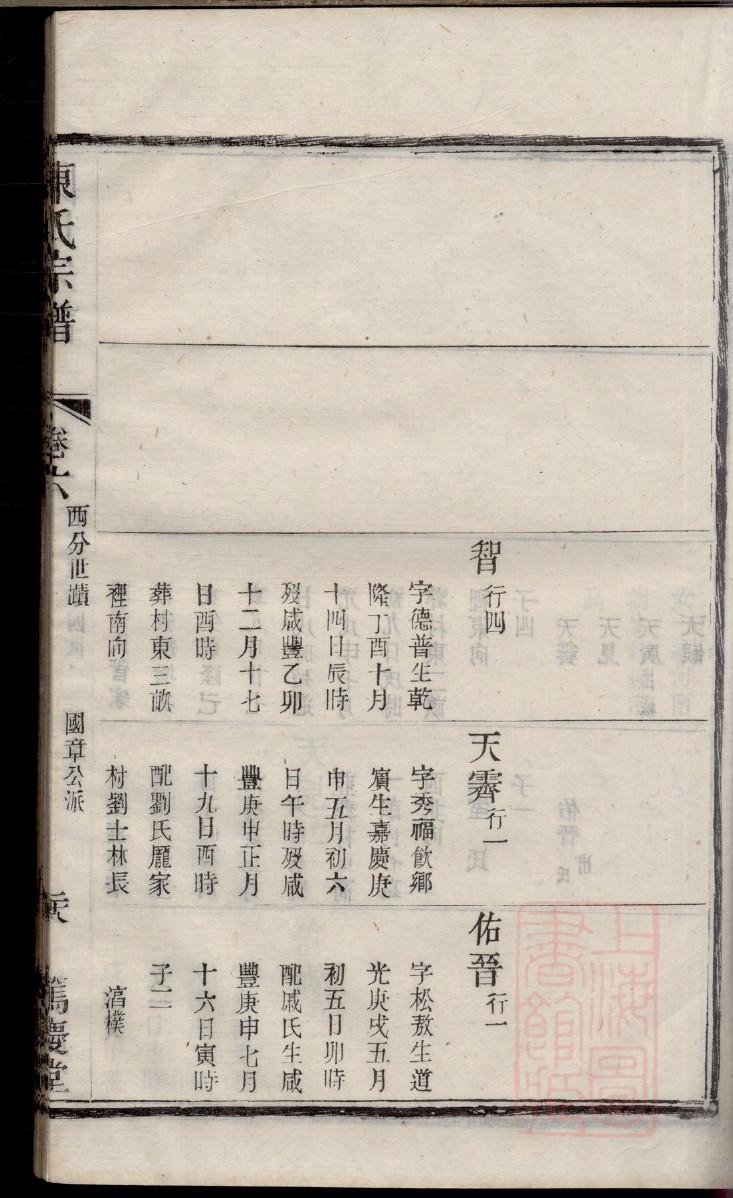 智 行四
字德普生乾
隆丁酉十月
十四日辰時
歿咸豐乙卯
十二月十七
日酉時
葬村東三畝
裡南向
天霽 行一
字秀福飲鄉
賔生嘉慶庚
申五月初六
日午時歿咸
豐庚申正月
十九日酉時
配劉氏龎家
村劉士林長
佑晉 行一
字松敖生道
光庚戌五月
初五日卯時
配戚氏生咸
豐庚申七月
十六日寅時
子二
樸
陳氏宗譜
卷六
西分世蹟
國章公派
篤慶堂
上海圖書館藏